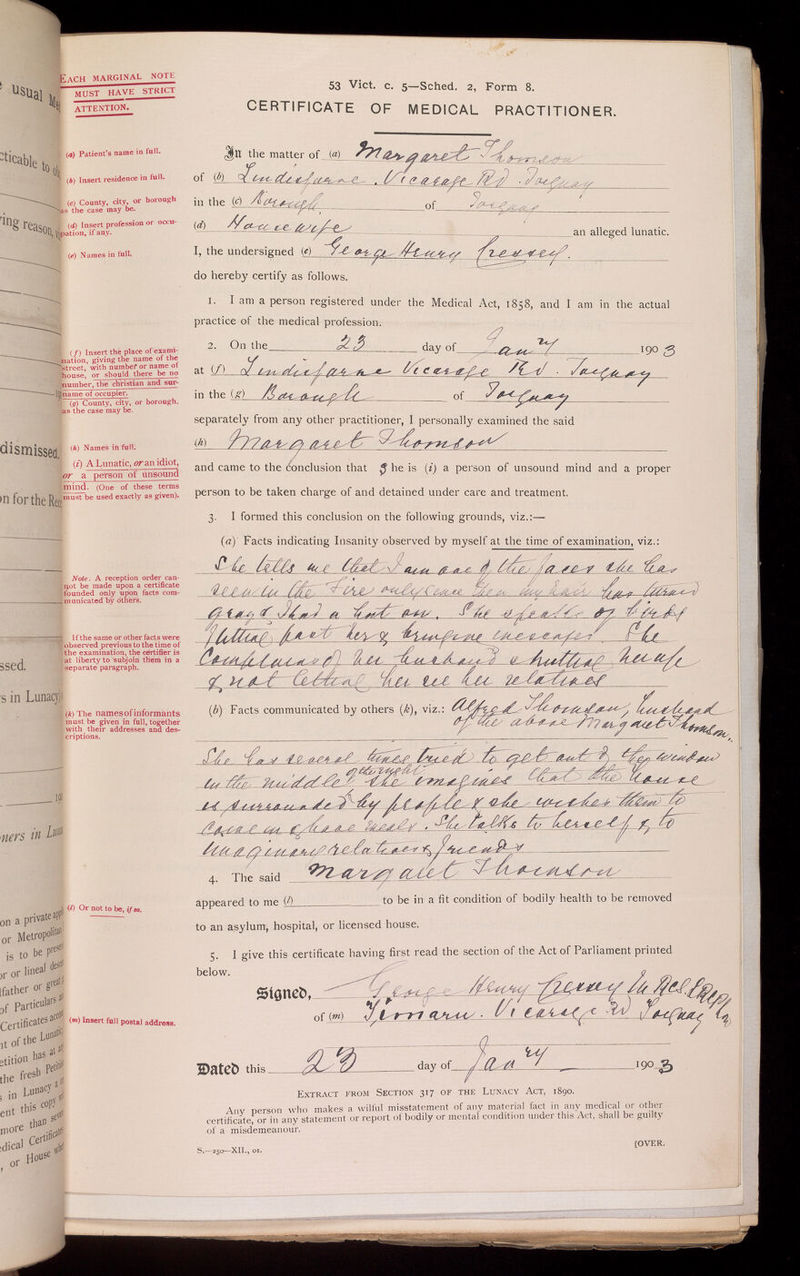 usual
EACH MARGINAL NOTE
MUST HAVE STRICT
ATTENTION.
53 Vict. c. 5—Sched. 2, Form 8.
CERTIFICATE OF MEDICAL PRACTITIONER.
(a) Patient's name in full.
In the matter of (a) Margaret Thomson
(b) Insert residence in full.
of (b) Lindisfarne, Vicarage Rd. Torquay
(c) County, city, or borough
as the case may be.
in the (c) Borough of Torquay
(d) Insert profession or occu-
pation, if any.
(d) Housewife an alleged lunatic.
(e) Names in full.
I, the undersigned (e) George Henry Cressey.
do hereby certify as follows.
1. I am a person registered under the Medical Act, 1858, and I am in the actual
practice of the medical profession.
2. On the 23 day of Jany 1903
(f) Insert the place of exami-
nation, giving the name of the
street, with number or name of
house, or should there be no
number, the christian and sur-
name of occupier.
at (f) Lindisfarne Vicarage Rd. Torquay
(g) County, city, or borough.
as the case may be.
in the (g) Borough of Torquay
separately from any other practitioner, I personally examined the said
(h) Names in full.
(h) Margaret Thomson
(i) A Lunatic, or an idiot,
or a person of unsound
mind. (One of these terms
must be used exactly as given).
and came to the conclusion that She is (i) a person of unsound mind and a proper
person to be taken charge of and detained under care and treatment.
3. I formed this conclusion on the following grounds, viz.:—
(a) Facts indicating Insanity observed by myself at the time of examination, viz.:
Note. A reception order can-
not be made upon a certificate
founded only upon facts com-
municated by others.
If the same or other facts were
observed previous to the time of
the examination, the certifier is
at liberty to subjoin them in a
separate paragraph.
She tells me that I am one of the faces she has
seen in the Fire only since then my hair has turned
gray & I had a hat on. She speaks of birds
flitting past her & bringing messages. She
complained of her husband shutting her up
& not letting her see her relatives
(k) The names of informants
must be given in full, together
with their addresses and des-
criptions.
(b) Facts communicated by others (k), viz.: Alfred Thomson, husband
of the above Margaret Thomson.
She has several times tried to get out of the window
in the middle of the night. She imagines that the house
is surrounded by people & she wishes them to
come in & have meals. She talks to herself & to
imaginary relatives & friends
4. The said Margaret Thomson
(l) Or not to be, if so.
appeared to me (l) to be in a fit condition of bodily health to be removed
to an asylum, hospital, or licensed house.
5. I give this certificate having first read the section of the Act of Parliament printed
below.
Signed, George Henry Cressey
(m) Insert full postal address.
of (m) Vicarage Rd Torquay
Dated this 23 day of Jany 1903
EXTRACT FROM SECTION 317 OF THE LUNACY ACT, 1890.
Any person who makes a wilful misstatement of any material fact in any medical or other
certificate, or in any statement or report of bodily or mental condition under this Act, shall be guilty
of a misdemeanour.
S.—250—XII., 01.
[OVER.
ticable to
ing reason,
dismissed,
n for the
ssed.
s in Lunacy
ners in
on a private
or Metropolitan
is to be
r or lineal
father or
of Particulars
Certificates
it of the
etition has
the fresh
in Lunacy
ent this copy
more than
dical
, or House